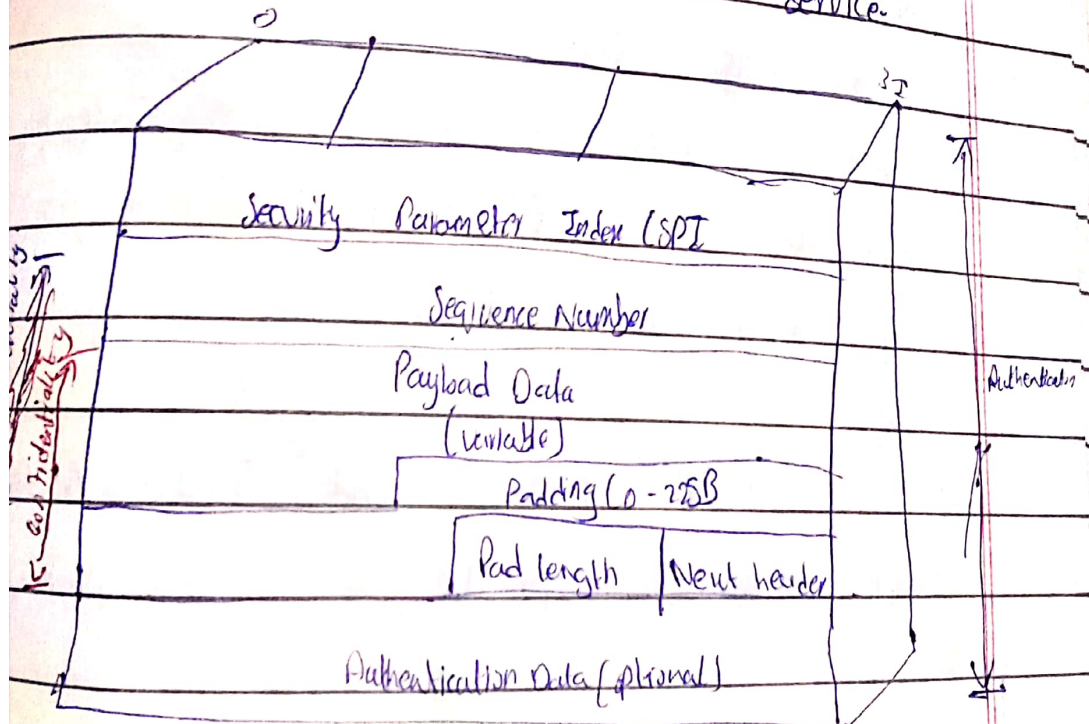 service.
0
31
Security Parameter Index (SPI
Sequence Number
Payload Data
(variable)
Padding (0-225B
Pad length
Next header
Authentication Data (optional)
Authentication
Confidentiality